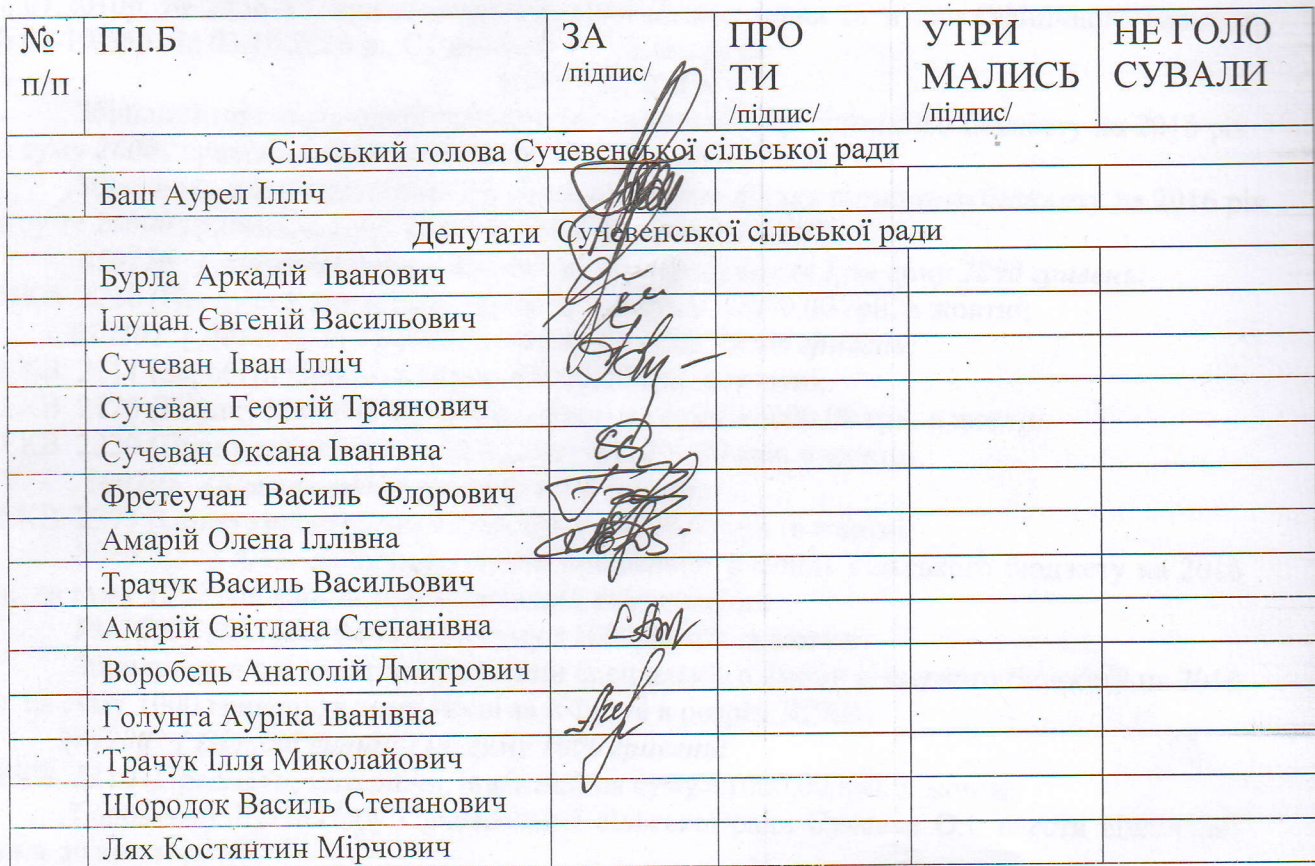 № п/п П.І.Б ЗА /підпис/ ПРО ТИ /підпис/ УТРИ МАЛИСЬ /підпис/ НЕ ГОЛО СУВАЛИ
Сільський голова Сучевенської сільської ради
Баш Аурел Ілліч
Депутати Сучевенської сільської ради
Бурла Аркадій Іванович
Ілуцан Євгеній Васильович
Сучеван Іван Ілліч
Сучеван Георгій Траянович
Сучеван Оксана Іванівна
Фретеучан Василь Флорович
Амарій Олена Іллівна
Трачук Василь Васильович
Амарій Світлана Степанівна
Воробець Анатолій Дмитрович
Голунга Ауріка Іванівна
Трачук Ілля Миколайович
Шородок Василь Степанович
Лях Костянтин Мірчович